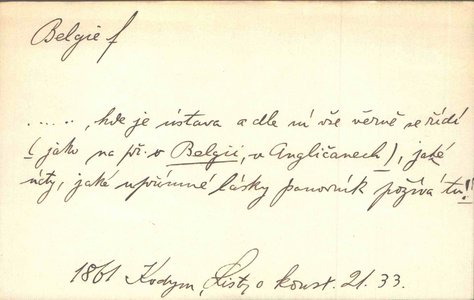 Belgie f
....., kde je ústava a dle ní vše věrně se řídí
( jako na př. v Belgii, v Angličanech ), jaké
úcty, jaké upřímné lásky panovník požívá tu!!
1861 Kodym, Listy o konst. 21. 33.